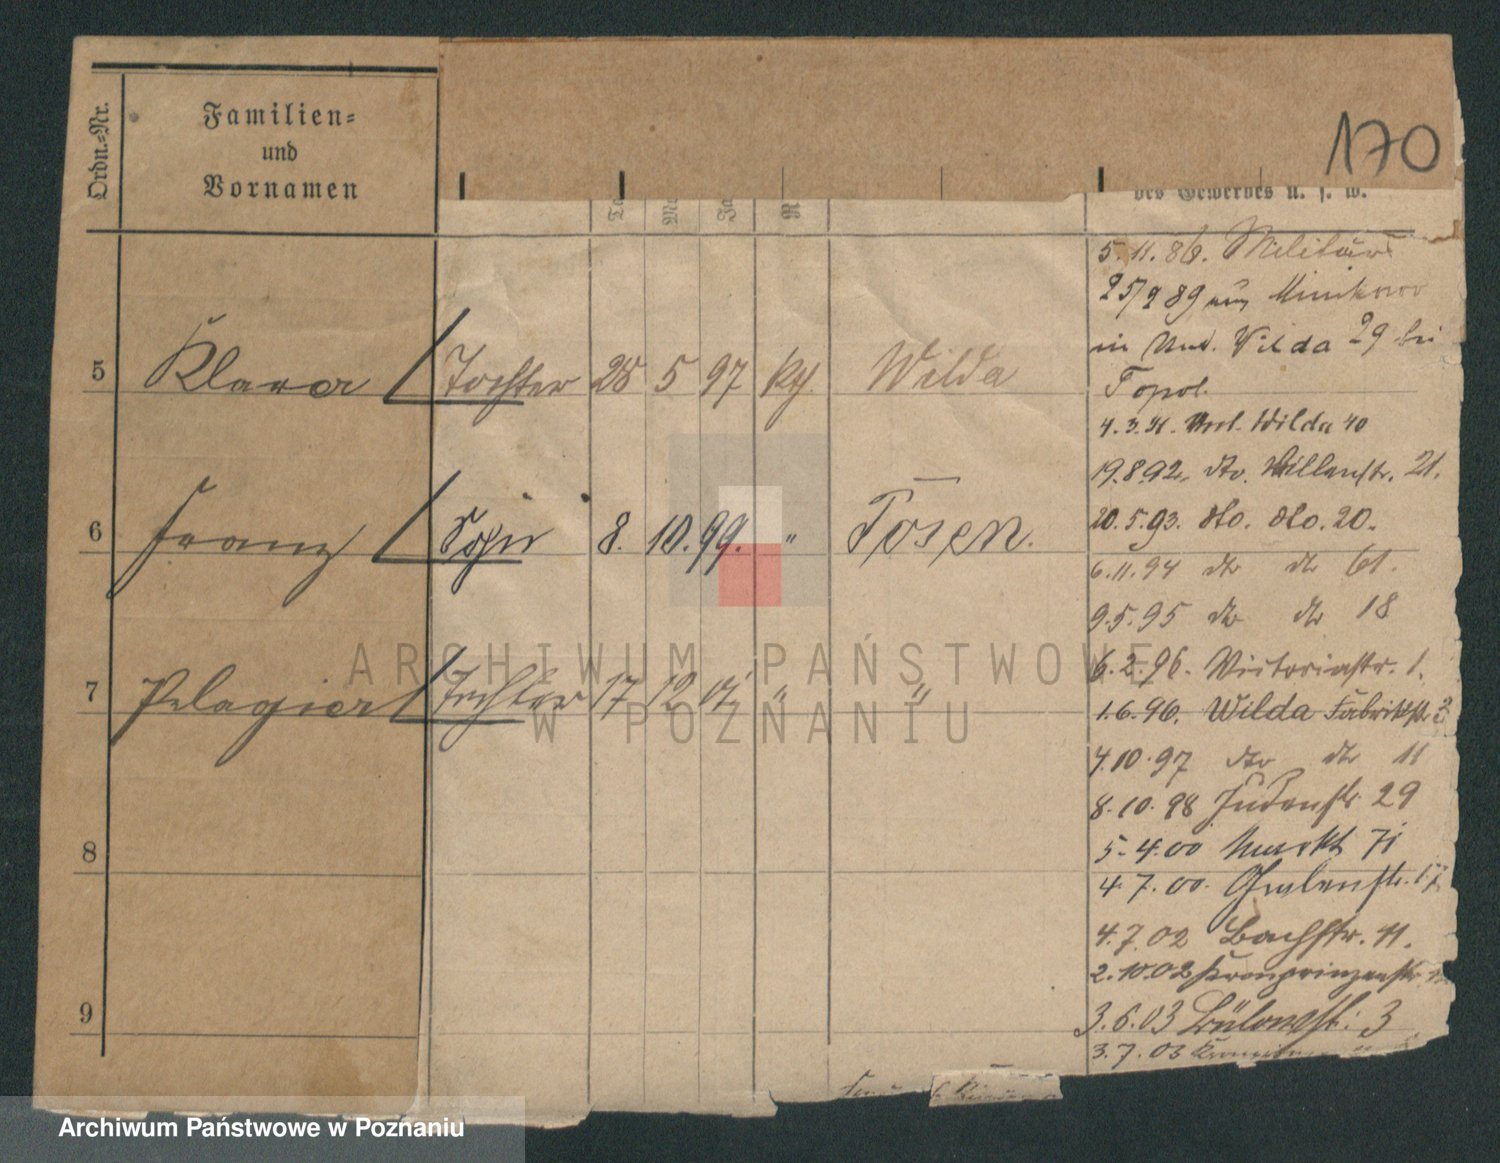 170
Ordn.=Nr.
Familien=
und
Vornamen
des Gewerbes u. s. w.
5.11.86. Militär
25/9 89 aus Minikowo
in Unt. Wilda 29 bei
Topol.
5 Klara Tochter 28 5 97 kth. Wilda
4.3.91. Unt. Wilda 40
19.8.92. dto. 21.
6 Franz Sohn 8. 10. 99. " Posen.
20.5.93. dto. dto. 20.
6.11.94 dto dto 61.
9.5.95 dto dto 18
6.2.96. Victoriastr. 1.
7 Pelagia Tochter 17 12 01 " "
1.6.96. Wilda Fabrikstr.
4.10.97 dto dto 11
8.10.98 Judenstr. 29
8
5.4.00 Markt 71
4.7.00. Grabenstr.
4.7.02 Bachstr. 11.
2.10.02 Kronprinzenstr.
9
3.6.03 Bülowstr. 3
3.7.03
ARCHIWUM PAŃSTWOWE
W POZNANIU
Archiwum Państwowe w Poznaniu